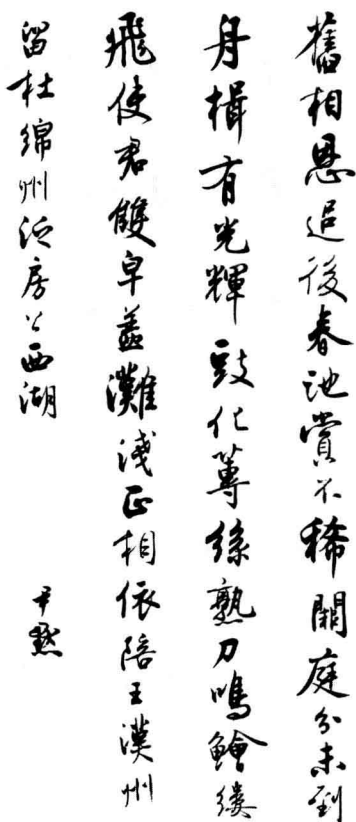 舊相恩追後春池賞不稀闕庭分未到
舟楫有光輝豉化蓴絲熟刀鳴鱠縷
飛使君雙皁蓋灘淺正相依陪王漢州
留杜綿州泛房公西湖
尹默